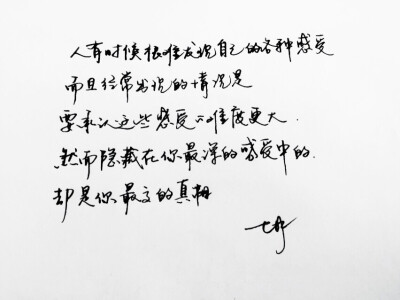 人有时候很难发现自己的各种感受
而且经常出现的情况是
要承认这些感受 难度更大.
然而隐藏在你最深的感受中的.
却是你最高的真相